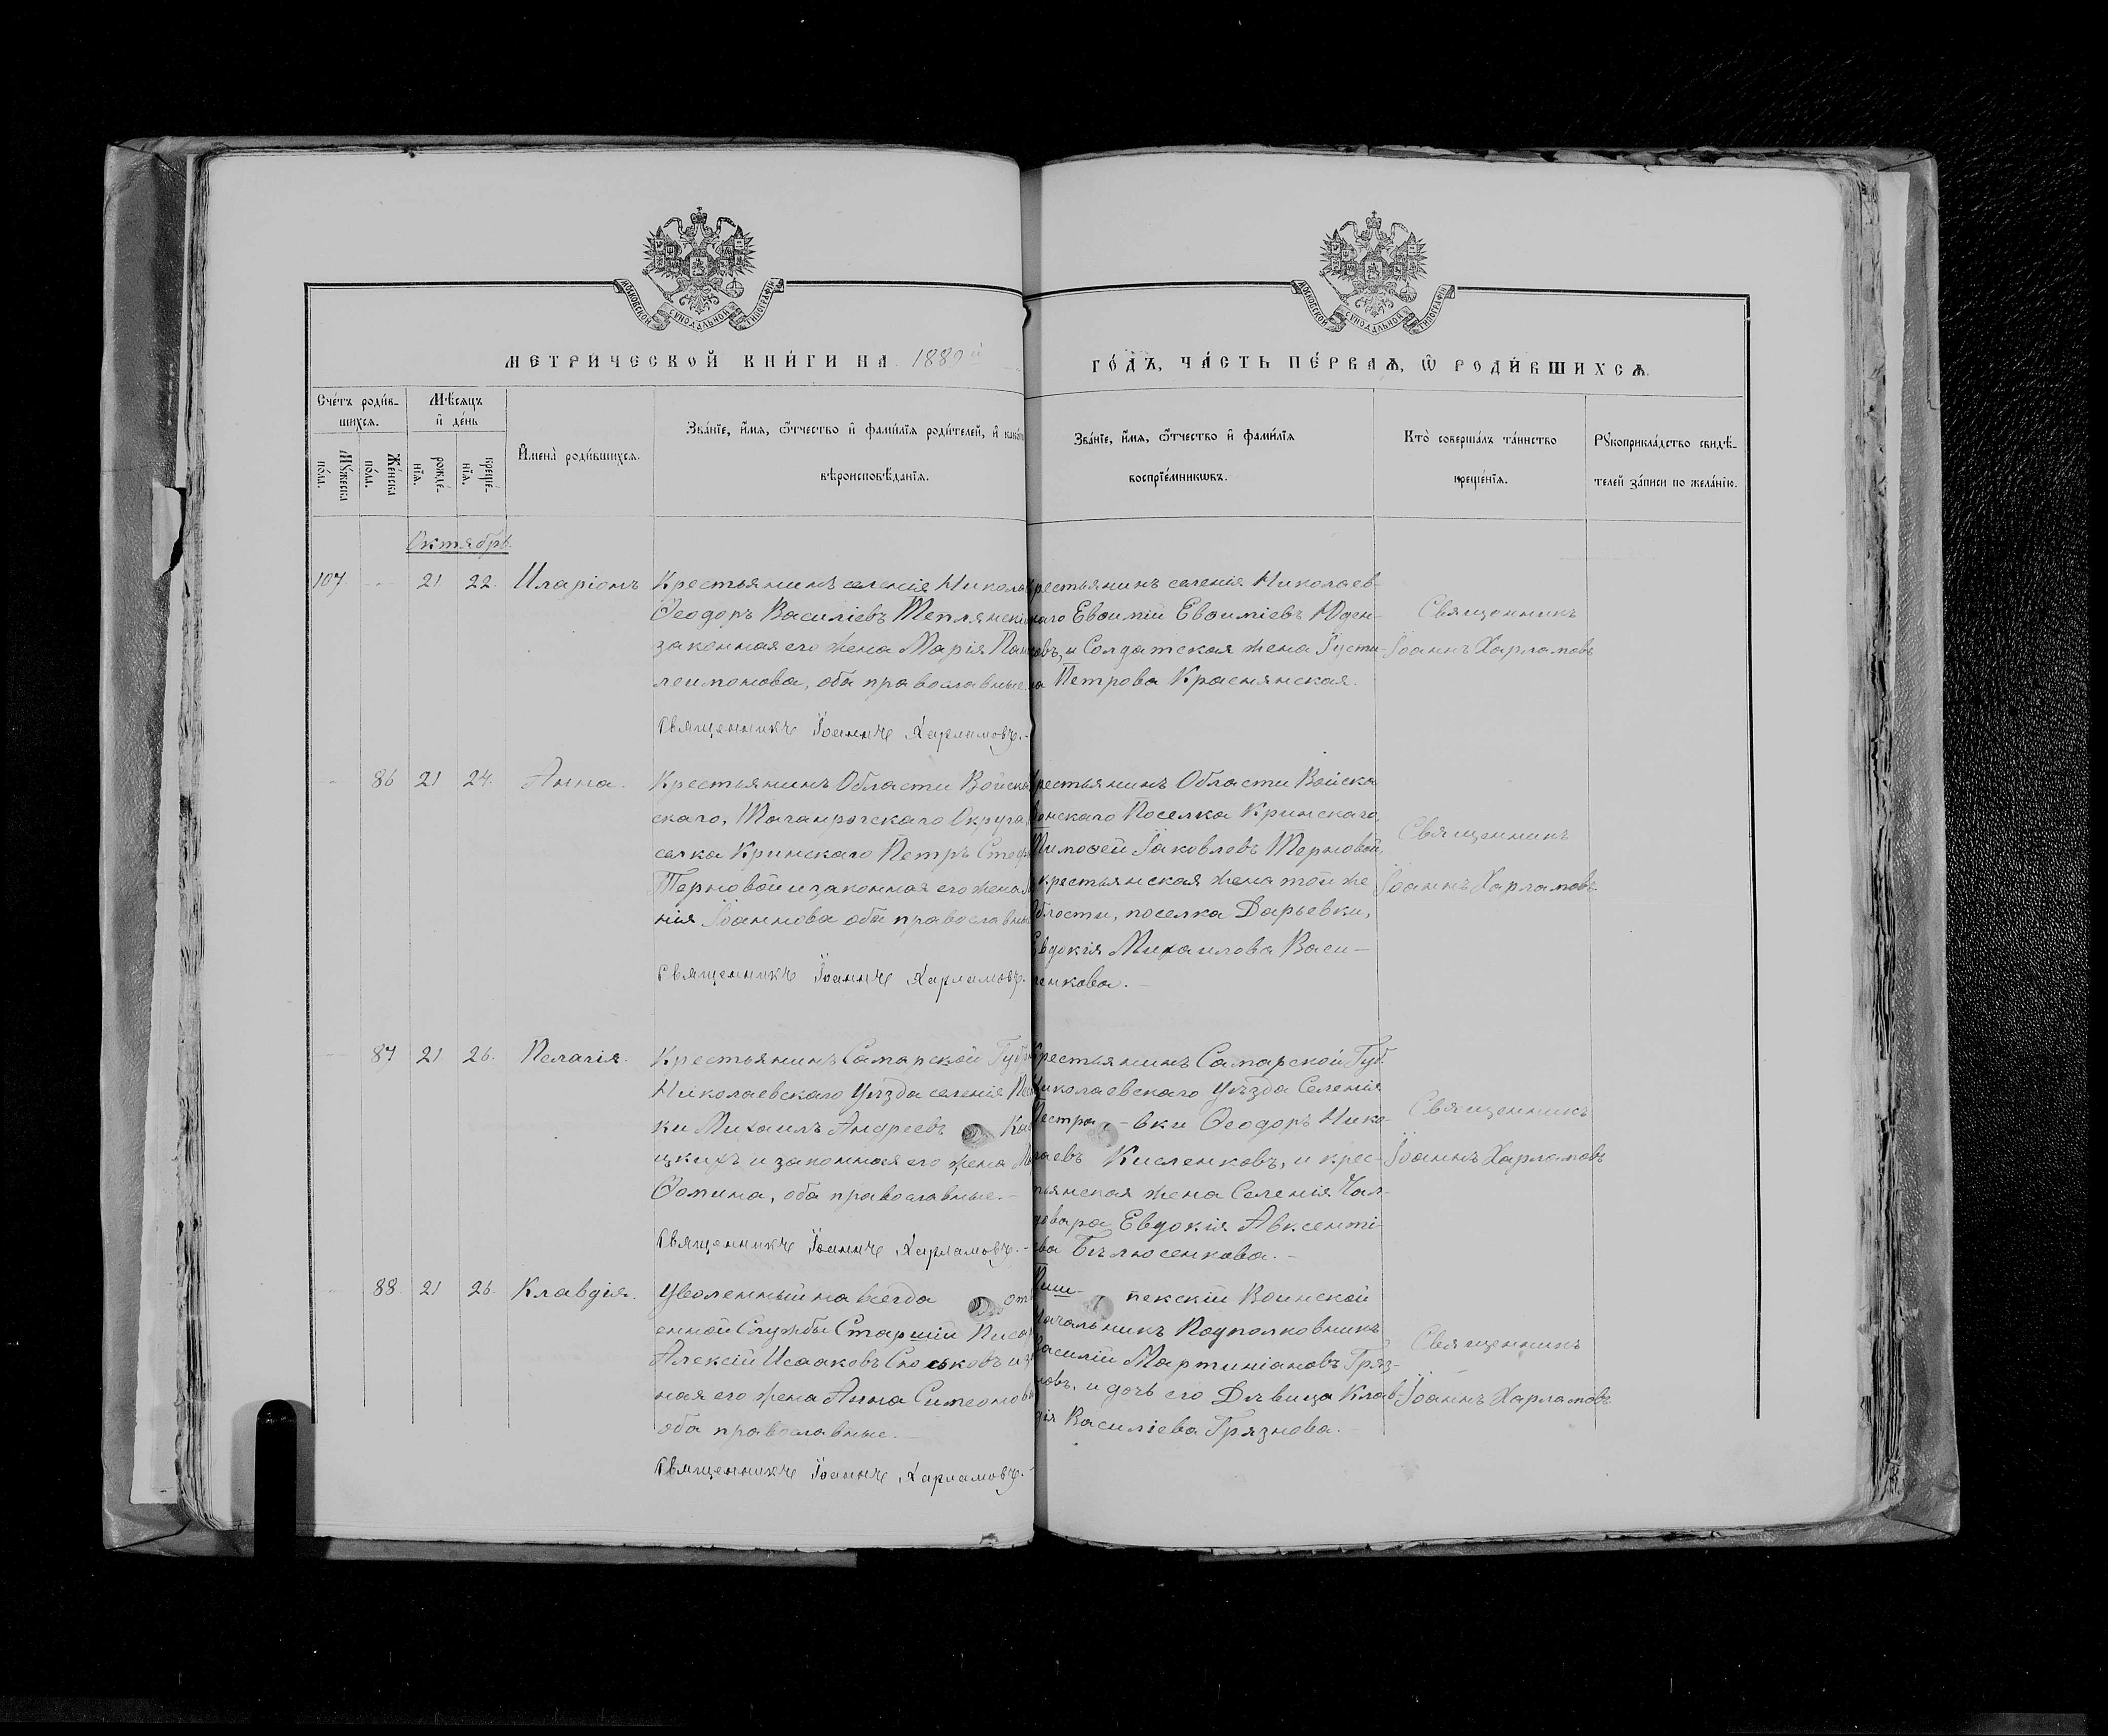 МОСКОВСКОЙ СѴНОДАЛЬНОЙ ТИПОГРАФІИ
МОСКОВСКОЙ СѴНОДАЛЬНОЙ ТИПОГРАФІИ
МЕТРИ́ЧЕСКОЙ КНИ́ГИ НА 1889й
ГО́ДЪ, ЧА́СТЬ ПЕ́РВАѦ, Ѡ҆ РОДИ́ВШИХСѦ.
Сче́тъ роди́в-
шихсѧ.
Мꙋ́жеска
по́ла.
Же́нска
по́ла.
Мѣ́сѧцъ
и҆ де́нь
рожде́-
нїѧ.
креще́-
нїѧ.
И҆мена̀ роди́вшихсѧ.
Зва́нїе, и҆́мѧ, ѻ҆́тчество и҆ фами́лїѧ роди́телей, и҆ како́гѡ
вѣроисповѣ́данїѧ.
Зва́нїе, и҆́мѧ, ѻ҆́тчество и҆ фами́лїѧ
воспрїе́мникѡвъ.
Кто̀ соверша́лъ та́инство
креще́нїѧ.
Рꙋкоприкла́дство свидѣ́-
телей за́писи по жела́нїю.
Октябрь.
107 21 22. Иларіонъ
Крестьянинъ селенія Никола
Ѳеодоръ Василіевъ Теплянскі
законная его жена Марія Пан
леимонова, оба православные
Священникъ Іоаннъ Харламовъ.
рестьянинъ селенія Николаев-
наго Евѳимій Евѳиміевъ Юден-
овъ, и Солдатская жена Іусти-
на Петрова Краснянская.
Священникъ
Іоаннъ Харламовъ
86 21 24. Анна.
Крестьянинъ Области Войска
скаго, Таганрогскаго Округа
селка Кринскаго Петръ Стеф
Терновой и законная его жена
нія Іоаннова оба православны
Священникъ Іоаннъ Харламовъ.
рестьянинъ Области Войска
Донскаго Поселка Кринскаго,
Тимоѳей Іаковлевъ Терновой,
крестьянская жена той же
бласти, поселка Дарьевки,
Евдокія Михаилова Васи-
ленкова.
Священникъ
Іоаннъ Харламовъ
87 21 26. Пелагія.
Крестьянинъ Самарской Губ
Николаевскаго Уѣзда селенія Пес
ки Михаилъ Андреевъ Ка
цкихъ и законная его жена
Ѳомина, оба православные.
Священникъ Іоаннъ Харламовъ.
Крестьянинъ Самарской Губ.
Николаевскаго Уѣзда Селенія
Пестра-вки Ѳеодоръ Нико-
лаевъ Кисленковъ, и крес-
тьянская жена Селенія Чал-
довара Евдокія Авксенті-
ева Бѣлюсенкова.
Священникъ
Іоаннъ Харламовъ
88. 21 26. Клавдія.
Уволенный на всегда от
енной Службы Старшій Писа
Алексій Исааковъ и за
ная его жена Анна Симеонов
оба православные.
Священникъ Іоаннъ Харламовъ.
Пиш-пекскій Воинской
Начальникъ Подполковникъ
Василій Мартиніановъ Гряз-
новъ, и дочь его Дѣвица Клав-
дія Василіева Грязнова.
Священникъ
Іоаннъ Харламовъ